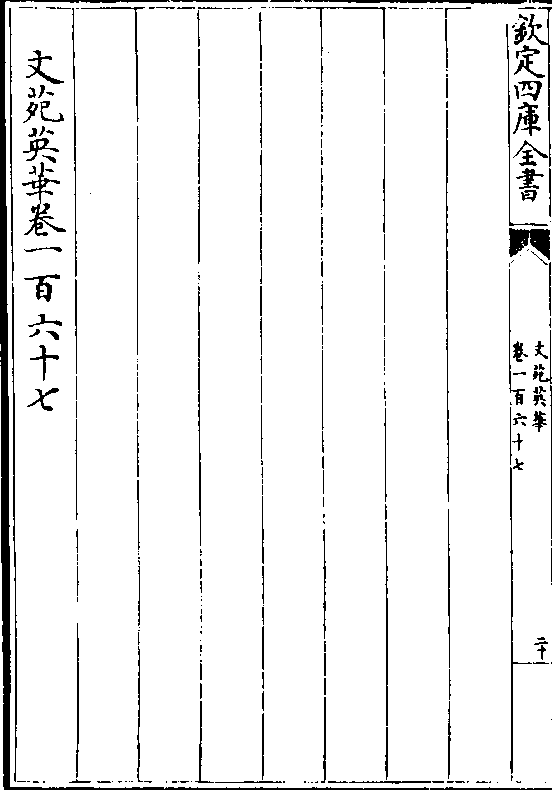 欽定四庫全書
文苑英華
卷一百六十七
二十
文苑英華卷一百六十七